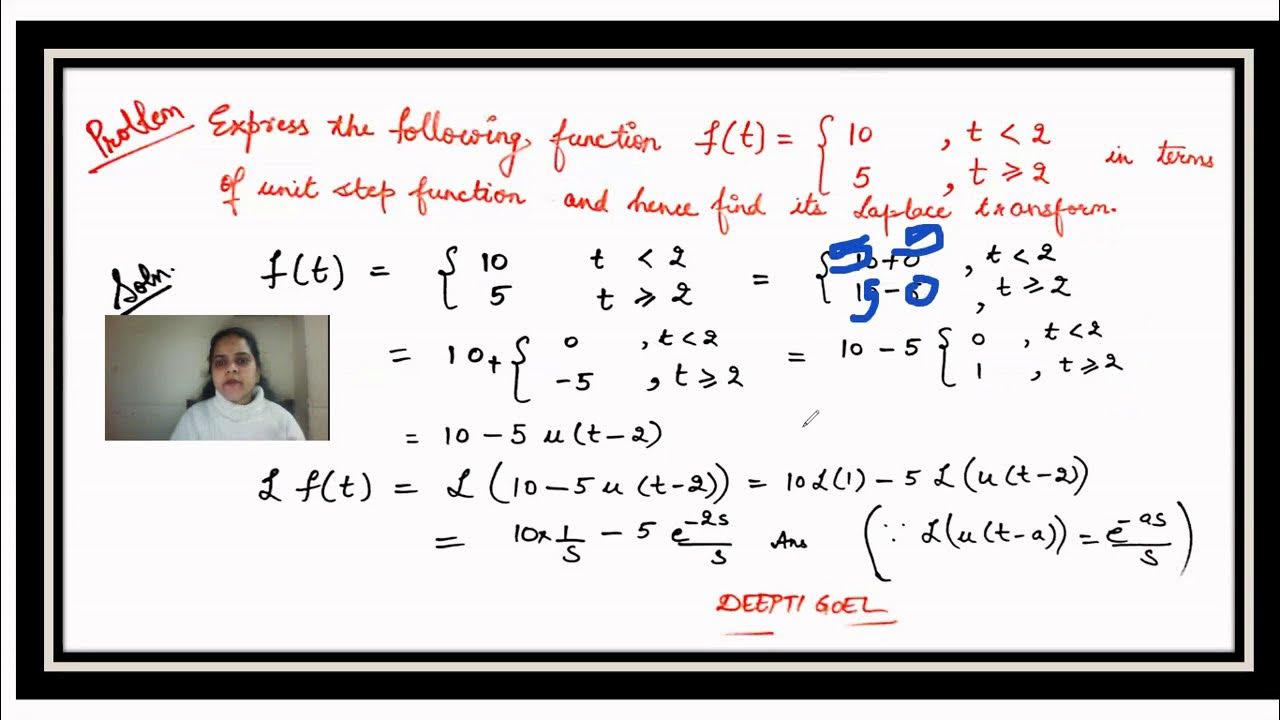 Problem Express the following function f(t) = { 10 , t < 2
5 , t ≥ 2 in terms
of unit step function and hence find its Laplace transform.
Soln. f(t) = { 10 t < 2 = { 10+0 , t < 2
5 t ≥ 2 , t ≥ 2
= 10 + { 0 , t < 2 = 10 - 5 { 0 , t < 2
-5 , t ≥ 2 1 , t ≥ 2
= 10 - 5 u(t-2)
L f(t) = L (10 - 5 u (t-2)) = 10 L(1) - 5 L (u(t-2))
= 10 x 1/s - 5 e^-2s/s Ans (∵ L(u(t-a)) = e^-as/s)
DEEPTI GOEL